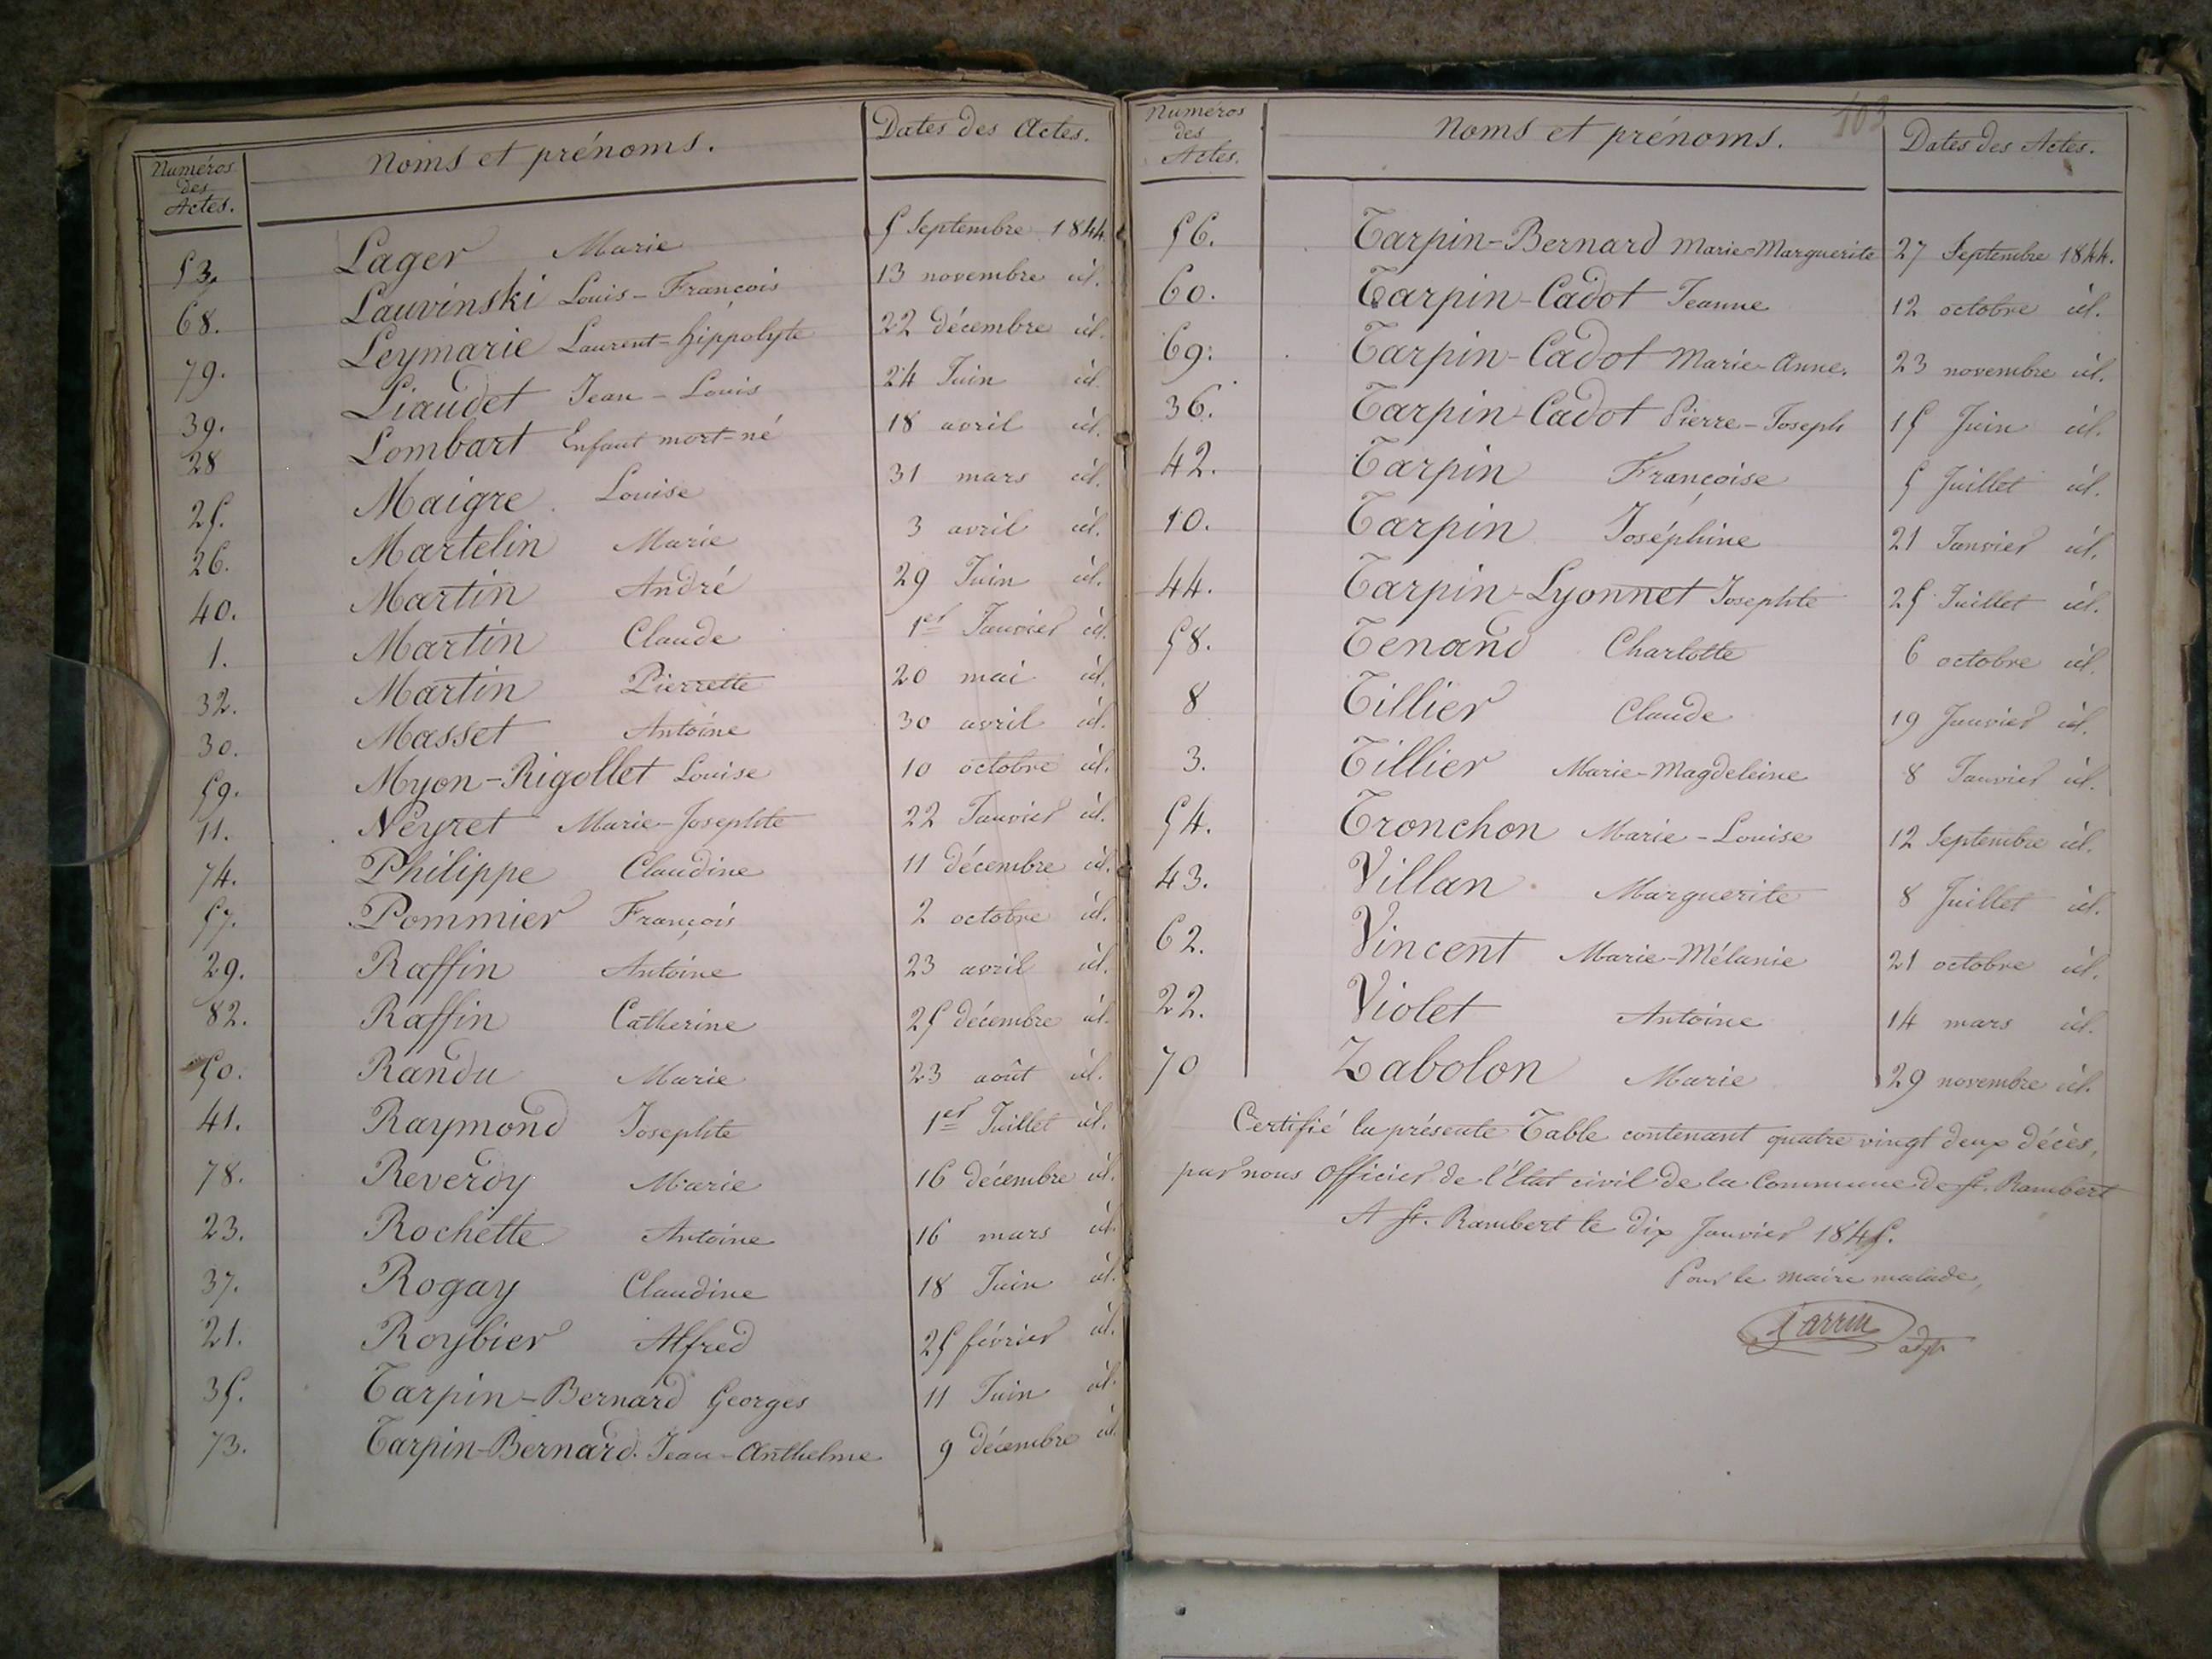 Numéros des Actes. Noms et prénoms. Dates des Actes.
53. Lager Marie 5 Septembre 1844
68. Lauvinski Louis-François 13 novembre id.
79. Leymarie Laurent-hippolyte 22 décembre id.
39. Liaudet Jean-Louis 24 Juin id.
28 Lombart Enfant mort-né 18 avril id.
25. Maigre Louise 31 mars id.
26. Martelin Marie 3 avril id.
40. Martin André 29 Juin id.
1. Martin Claude 1er Janvier id.
32. Martin Pierrette 20 mai id.
30. Masset Antoine 30 avril id.
59. Myon-Rigollet Louise 10 octobre id.
11. Neyret Marie-Josephte 22 Janvier id.
74. Philippe Claudine 11 décembre id.
57. Pommier François 2 octobre id.
29. Raffin Antoine 23 avril id.
82. Raffin Catherine 25 décembre id.
50. Randu Marie 23 août id.
41. Raymond Josephte 1er Juillet id.
78. Reveroy Marie 16 décembre id.
23. Rochette Antoine 16 mars id.
37. Rogay Claudine 18 Juin id.
21. Roybier Alfred 25 février id.
35. Tarpin-Bernard Georges 11 Juin id.
73. Tarpin-Bernard Jean-Anthelme 9 décembre id.
103
Numéros des Actes. Noms et prénoms. Dates des Actes.
56. Tarpin-Bernard Marie-Marguerite 27 Septembre 1844.
60. Tarpin-Cadot Jeanne 12 octobre id.
69. Tarpin-Cadot Marie-Anne. 23 novembre id.
36. Tarpin-Cadot Pierre-Joseph 15 Juin id.
42. Tarpin Françoise 5 Juillet id.
10. Tarpin Joséphine 21 Janvier id.
44. Tarpin-Lyonnet Josephte 25 Juillet id.
58. Tenand Charlotte 6 octobre id.
8 Tillier Claude 19 Janvier id.
3. Tillier Marie-Magdeleine 8 Janvier id.
54. Tronchon Marie-Louise 12 Septembre id.
43. Villan Marguerite 8 Juillet id.
62. Vincent Marie-Mélanie 21 octobre id.
22. Violet Antoine 14 mars id.
70 Zabolon Marie 29 novembre id.
Certifié la présente Table contenant quatre vingt deux décès,
par nous Officier de l'Etat civil de la Commune de St. Rambert
A St. Rambert le dix Janvier 1845.
Pour le maire malade,
adjt